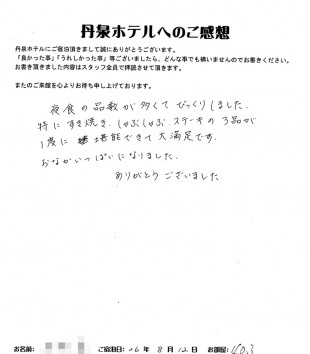 丹泉ホテルへのご感想
丹泉ホテルにご宿泊頂きまして誠にありがとうございます。
「良かった事」「うれしかった事」等ございましたら、どんな事でも構いませんのでお書きください。
お書き頂きました内容はスタッフ全員で拝読させて頂きます。
またのご来館を心よりお待ち申し上げております。
夜食の品数が多くてびっくりしました。
特にすき焼き、しゃぶしゃぶ、ステーキの3品が
1度に 堪能できて大満足です。
おなかいっぱいになりました。
ありがとうございました
お名前: ご宿泊日: 26年 8月 12日 お部屋: 403